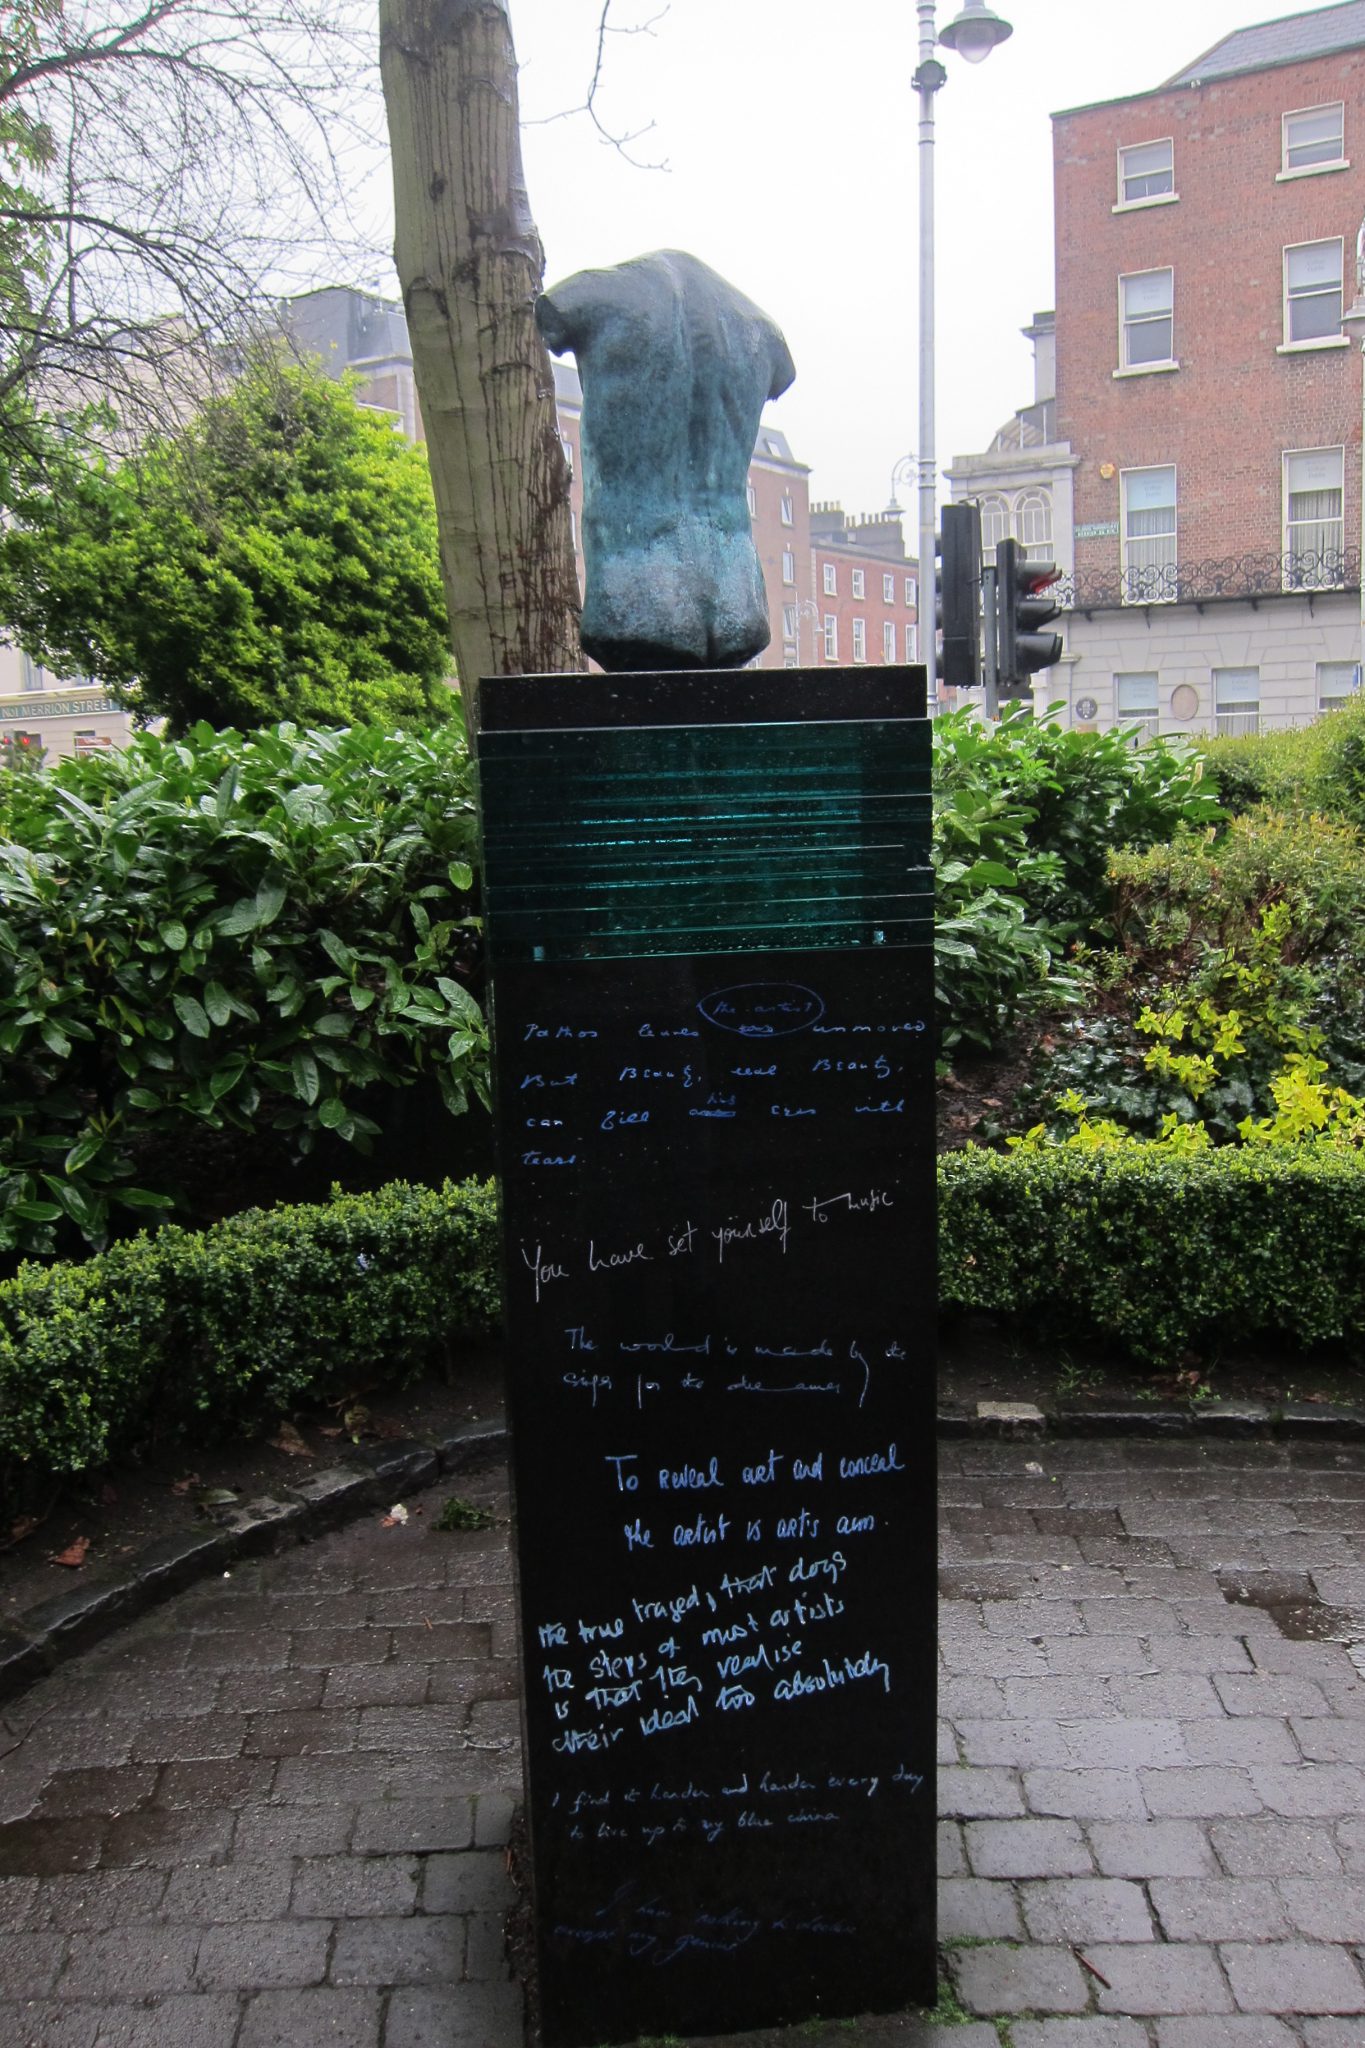 No1 MERRION STREET
the artist
Pathos leaves unmoved
But Beauty, real Beauty,
his
can fill eyes with
tears.
You have set yourself to music
The world is made by the
singer for the dreamer
To reveal art and conceal
the artist is art's aim.
the true tragedy that dogs
the steps of most artists
is that they realise
their ideal too absolutely
I find it harder and harder every day
to live up to my blue china
I have nothing to declare
except my genius